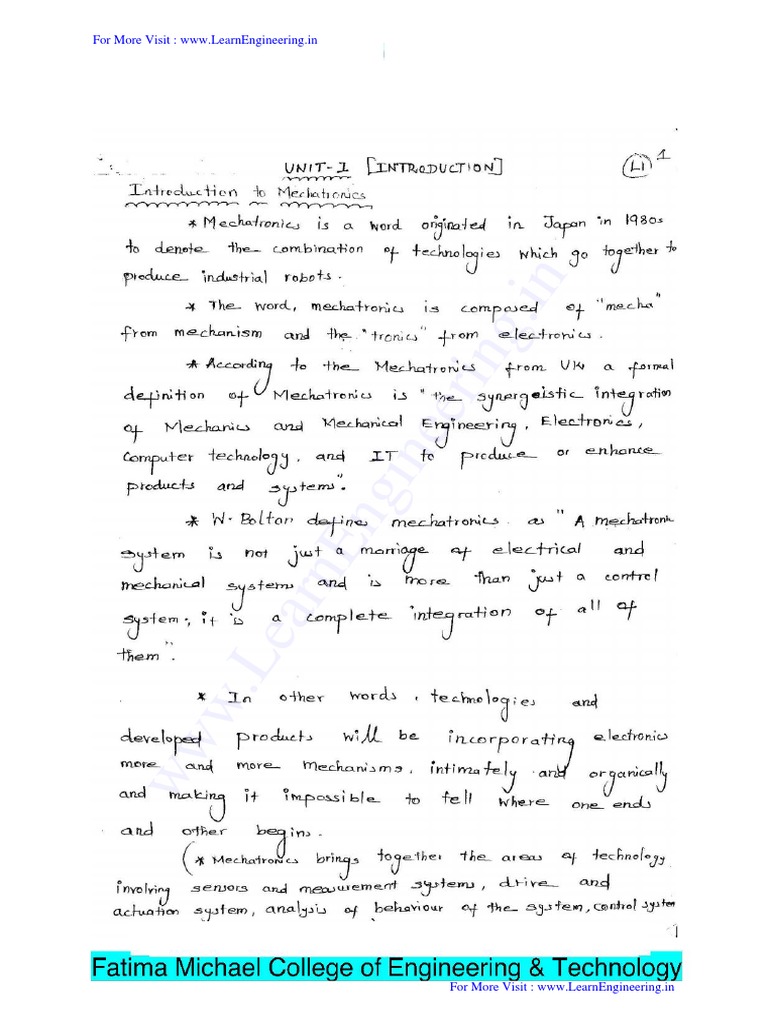 For More Visit : www.LearnEngineering.in
UNIT-I [INTRODUCTION] L1 1
Introduction to Mechatronics
* Mechatronics is a word originated in Japan in 1980s
to denote the combination of technologies which go together to
produce industrial robots.
* The word, mechatronics is composed of "mecha"
from mechanism and the "tronics" from electronics.
* According to the Mechatronics from UK, a formal
definition of Mechatronics is "the synergeistic integration
of Mechanics and Mechanical Engineering, Electronics,
Computer technology, and IT to produce or enhance
products and systems".
* W. Bolton defines mechatronics as "A mechatronic
system is not just a marriage of electrical and
mechanical systems and is more than just a control
system; it is a complete integration of all of
them".
* In other words, technologies and
developed products will be incorporating electronics
more and more Mechanisms, intimately and organically
and making it impossible to tell where one ends
and other begins.
(* Mechatronics brings together the areas of technology
involving sensors and measurement systems, drive and
actuation system, analysis of behaviour of the system, control system
www.LearnEngineering.in
1
Fatima Michael College of Engineering & Technology
For More Visit : www.LearnEngineering.in